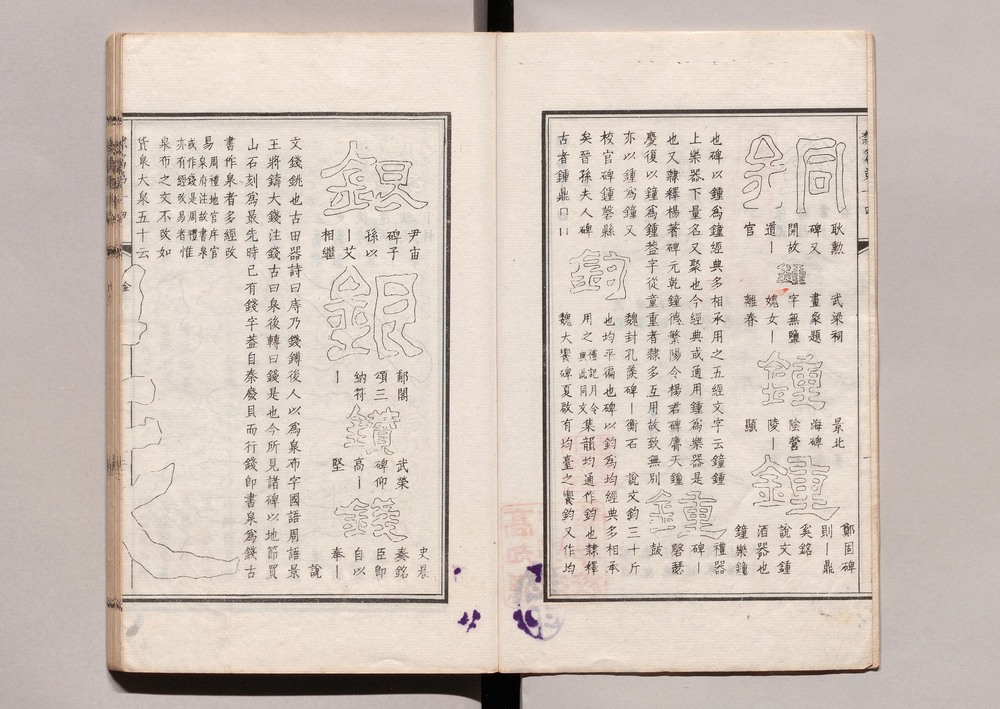 銅
耿勳
碑又
開故
道丨
官
鐘
武梁祠
畫象題
字無鹽
媿女丨
離春
鍾
景北
海碑
陰營
陵丨
顯
鍾
鄭固碑
則丨鼎
奚銘
說文鍾
酒器也
鐘樂鐘
也碑以鍾爲鐘經典多相承用之五經文字云鐘鍾
上樂器下量名又聚也今經典或通用鍾爲樂器是
也又隸釋楊著碑元乾鐘德繁陽令楊君碑膺天鐘
慶復以鐘爲鍾葢字從童重者隸多互用故致無別
鍾
禮器
碑丨
磬瑟
鼓
亦以鍾爲鐘又
校官碑鍾磬縣
矣晉孫夫人碑
古者鍾鼎口口
鈞
魏封孔羨碑丨衡石 說文鈞三十斤
也均平徧也碑以鈞爲均經典多相承
用之禮記月令與此同文集韻均通作鈞也隸釋
魏大饗碑夏啟有均臺之饗鈞又作均
銀
尹宙
碑子
孫以
丨艾
相繼
銀
郙閣
頌三
納符
丨
鑽
武榮
碑仰
高丨
堅
錢
史晨
奏銘
臣卽
自以
奉丨 說
文錢銚也古田器詩曰庤乃錢鎛後人以爲泉布字國語周語景
王將鑄大錢注錢古曰泉後轉曰錢是也今所見諸碑以地節買
山石刻爲最先時已有錢字葢自秦廢貝而行錢卽書泉爲錢古
書作泉者多經攺
易周禮地官序官泉府注故書泉
或作錢是周禮亦有經攺易者惟
泉布之文不攺如
貨泉大泉五十云